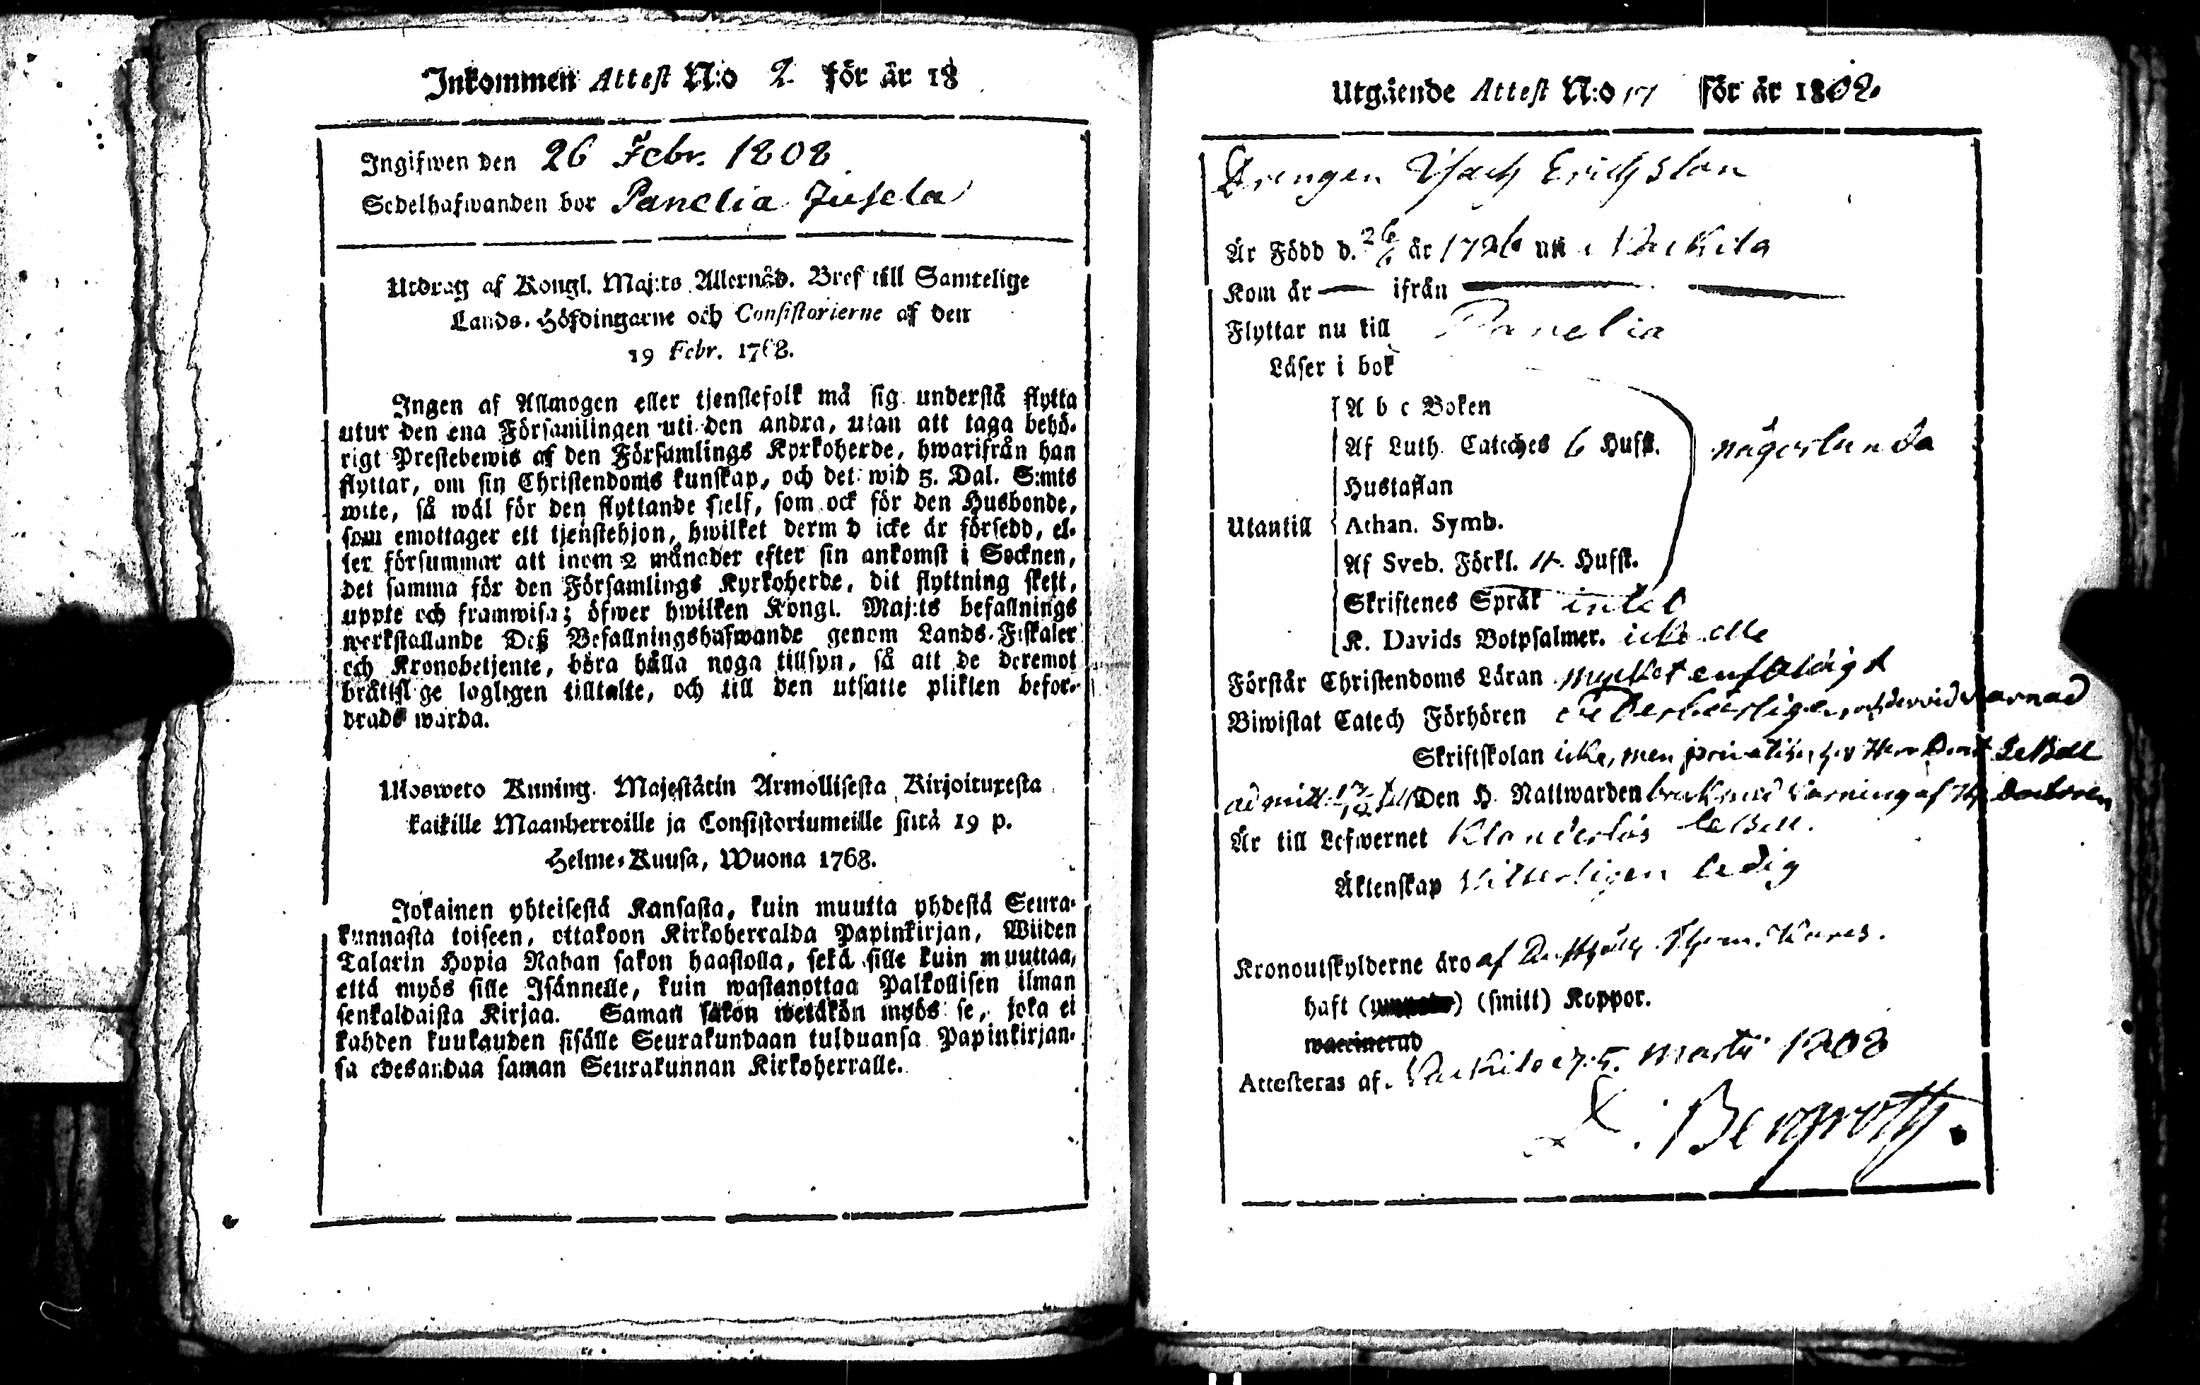 Inkommen Attest N:o 2. för år 18
Ingifwen den 26 Febr. 1808
Sedelhafwanden bor Panelia Jusela
Utdrag af Kongl. Maj:ts Allernåd. Bref till Samtelige
Lands-Höfdingarne och Consistorierne af den
19 Febr. 1768.
Ingen af Allmogen eller tjenstefolk må sig understå flytta
utur den ena Församlingen uti den andra, utan att taga behö-
rigt Prestebewis af den Församlings Kyrkoherde, hwarifrån han
flyttar, om sin Christendoms kunskap, och det wid 5. Dal. S:mts
wite, så wäl för den flyttande sielf, som ock för den Husbonde,
som emottager ett tjenstehjon, hwilket derm d icke är försedd, el-
ler försummar att inom 2 månader efter sin ankomst i Socknen,
det samma för den Församlings Kyrkoherde, dit flyttning skett,
uppte och framwisa; öfwer hwilken Kongl. Maj:ts befallnings
werkställande Deß Befallningshafwande genom Lands-Fiskaler
och Kronobetjente, böra hålla noga tillsyn, så att de deremot
bråtisl ge lagligen tilltalte, och till den utsatte plikten befor-
drade warda.
Ulosweto Kuning. Majestätin Armollisesta Kirjoituxesta
kaikille Maanherroille ja Consistoriumeille siitä 19 p.
Helme-Kuusa, Wuona 1768.
Jokainen yhteisestä Kansasta, kuin muutta yhdestä Seura-
kunnasta toiseen, ottakoon Kirkoherralda Papinkirjan, Wiiden
Talarin Hopia Rahan sakon haastolla, sekä sille kuin muuttaa,
että myös sille Isännelle, kuin wastanottaa Palkollisen ilman
senkaldaista Kirjaa. Saman sakon wetäkön myös se, joka ei
kahden kuukauden sisälle Seurakundaan tulduansa Papinkirjan-
sa edesandaa saman Seurakunnan Kirkoherralle.
Utgående Attest N:o 17 för år 1808.
Drengen Isach Erichsson
Är Född d. 26/6 år 1786 uti i Kackila
Kom år — ifrån —
Flyttar nu till Panelia
Läser i bok
A b c Boken
Af Luth. Cateches 6 Hufst. någorlunda
Hustaflan
Utantill Athan. Symb.
Af Sveb. Förkl. 4. Hufst.
Skriftenes Språk intet
K. Davids Botpsalmer. icke elle
Förstår Christendoms Läran mycket enfaldigt
Biwistat Catech Förhören och
Skriftskolan icke, men privatim
Den H. Nattwarden
Är till Lefwernet Klanderlös
Äktenskap Vitterligen ledig
Kronoutskylderne äro af
haft () (smitt) Koppor.
waccinerad
Attesteras af. d. 5. Martii 1808
Bergroth.